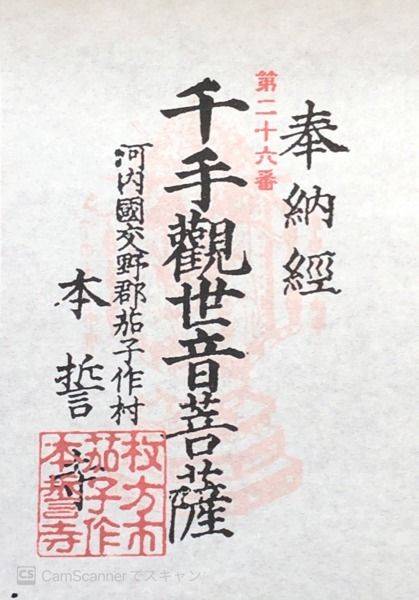 奉納經
第二十六番
千手觀世音菩薩
河内國交野郡茄子作村
本誓寺
枚方市
茄子作
本誓寺
CS CamScanner でスキャン